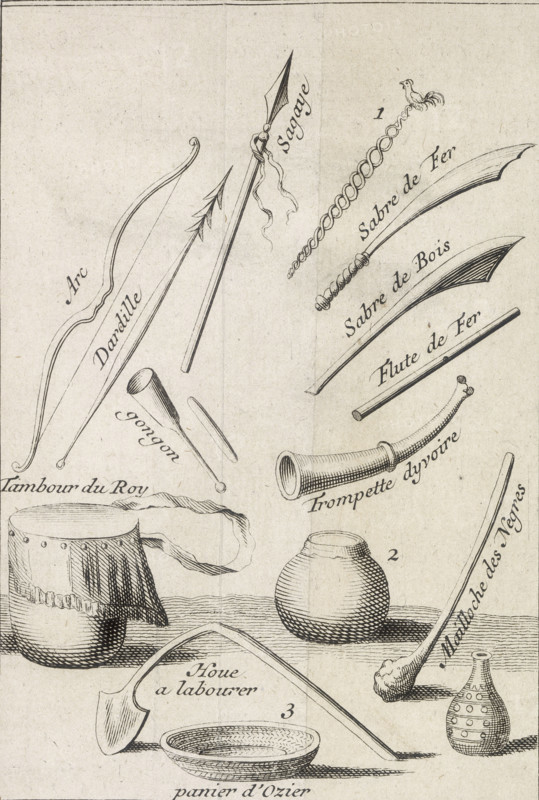 Sagaye
1
Sabre de Fer
Arc
Dardille
Sabre de Bois
Flute de Fer
gongon
Trompette dyvoire
Tambour du Roy
2
Mailloche des Negres
Houe
a labourer
3
panier d'Ozier